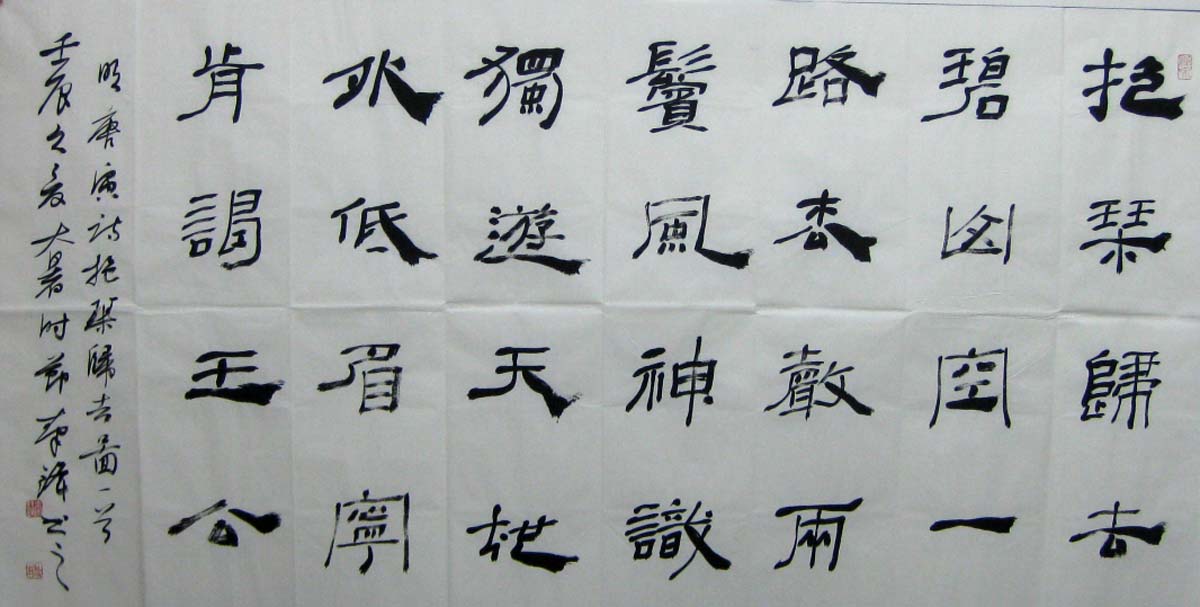 抱琴歸去
碧山空一
路松聲兩
鬢風神識
獨遊天地
外低眉寧
肯謁王公
明唐寅詩抱琴歸去圖一首
壬辰之夏大暑时節书之